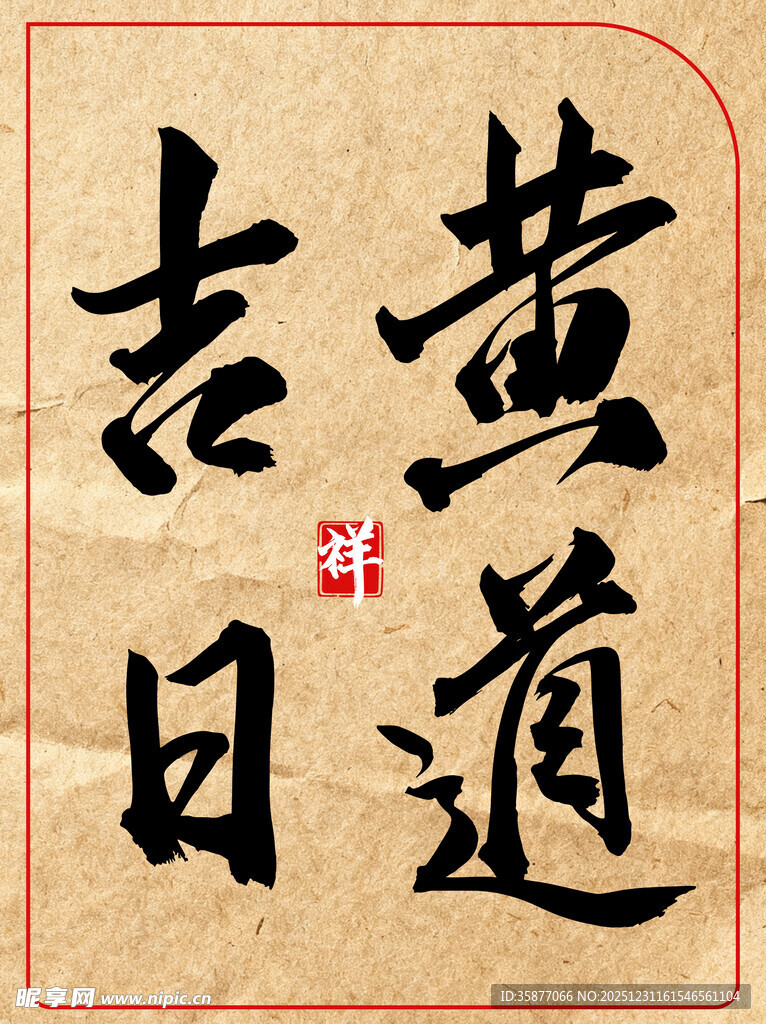 黄道
吉日
祥
昵享网 www.nipic.cn
ID:35877066 NO:20251231161546561104